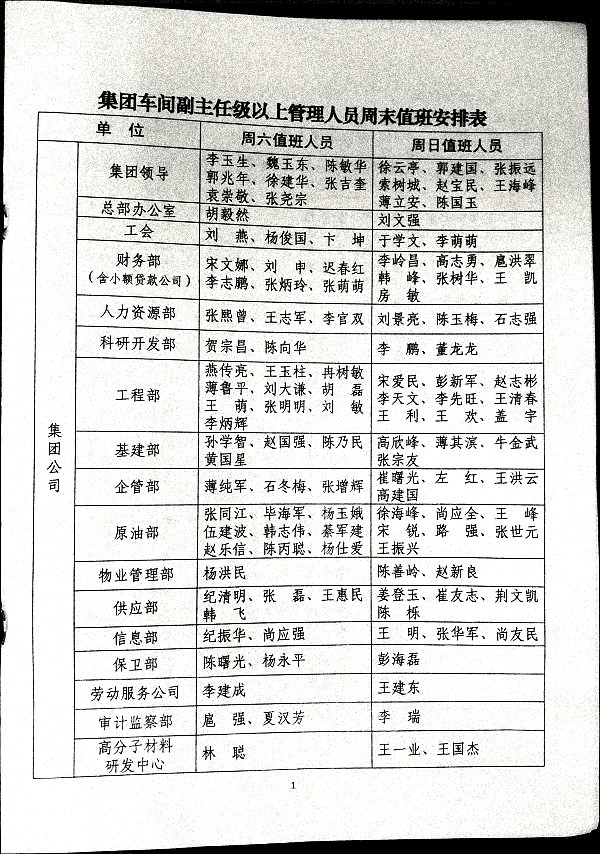 集团车间副主任级以上管理人员周末值班安排表
单 位 周六值班人员 周日值班人员
集团公司
集团领导
李玉生、魏玉东、陈敏华
郭兆年、徐建华、张吉奎
袁崇敬、张尧宗
徐云亭、郭建国、张振远
索树城、赵宝民、王海峰
薄立安、陈国玉
总部办公室 胡毅然 刘文强
工会 刘 燕、杨俊国、卞 坤 于学文、李萌萌
财务部
(含小额贷款公司)
宋文娜、刘 申、迟春红
李志鹏、张炳玲、张萌萌
李岭昌、高志勇、扈洪翠
韩 峰、张树华、王 凯
房 敏
人力资源部 张熙曾、王志军、李官双 刘景亮、陈玉梅、石志强
科研开发部 贺宗昌、陈向华 李 鹏、董龙龙
工程部
燕传亮、王玉柱、冉树敏
薄鲁平、刘大谦、胡 磊
王 萌、张明明、刘 敏
李炳辉
宋爱民、彭新军、赵志彬
李天文、李先旺、王清春
王 利、王 欢、盖 宇
基建部
孙学智、赵国强、陈乃民
黄国星
高欣峰、薄其滨、牛金武
张宗友
企管部
薄纯军、石冬梅、张增辉
崔曙光、左 红、王洪云
高建国
原油部
张同江、毕海军、杨玉娥
伍建波、韩志伟、綦军建
赵乐信、陈丙聪、杨仕爱
徐海峰、尚应全、王 峰
宋 锐、路 强、张世元
王振兴
物业管理部 杨洪民 陈善岭、赵新良
供应部
纪清明、张 磊、王惠民
韩 飞
姜登玉、崔友志、荆文凯
陈 栎
信息部 纪振华、尚应强 王 明、张华军、尚友民
保卫部 陈曙光、杨永平 彭海磊
劳动服务公司 李建成 王建东
审计监察部 扈 强、夏汉芳 李 瑞
高分子材料
研发中心
林 聪 王一业、王国杰
1